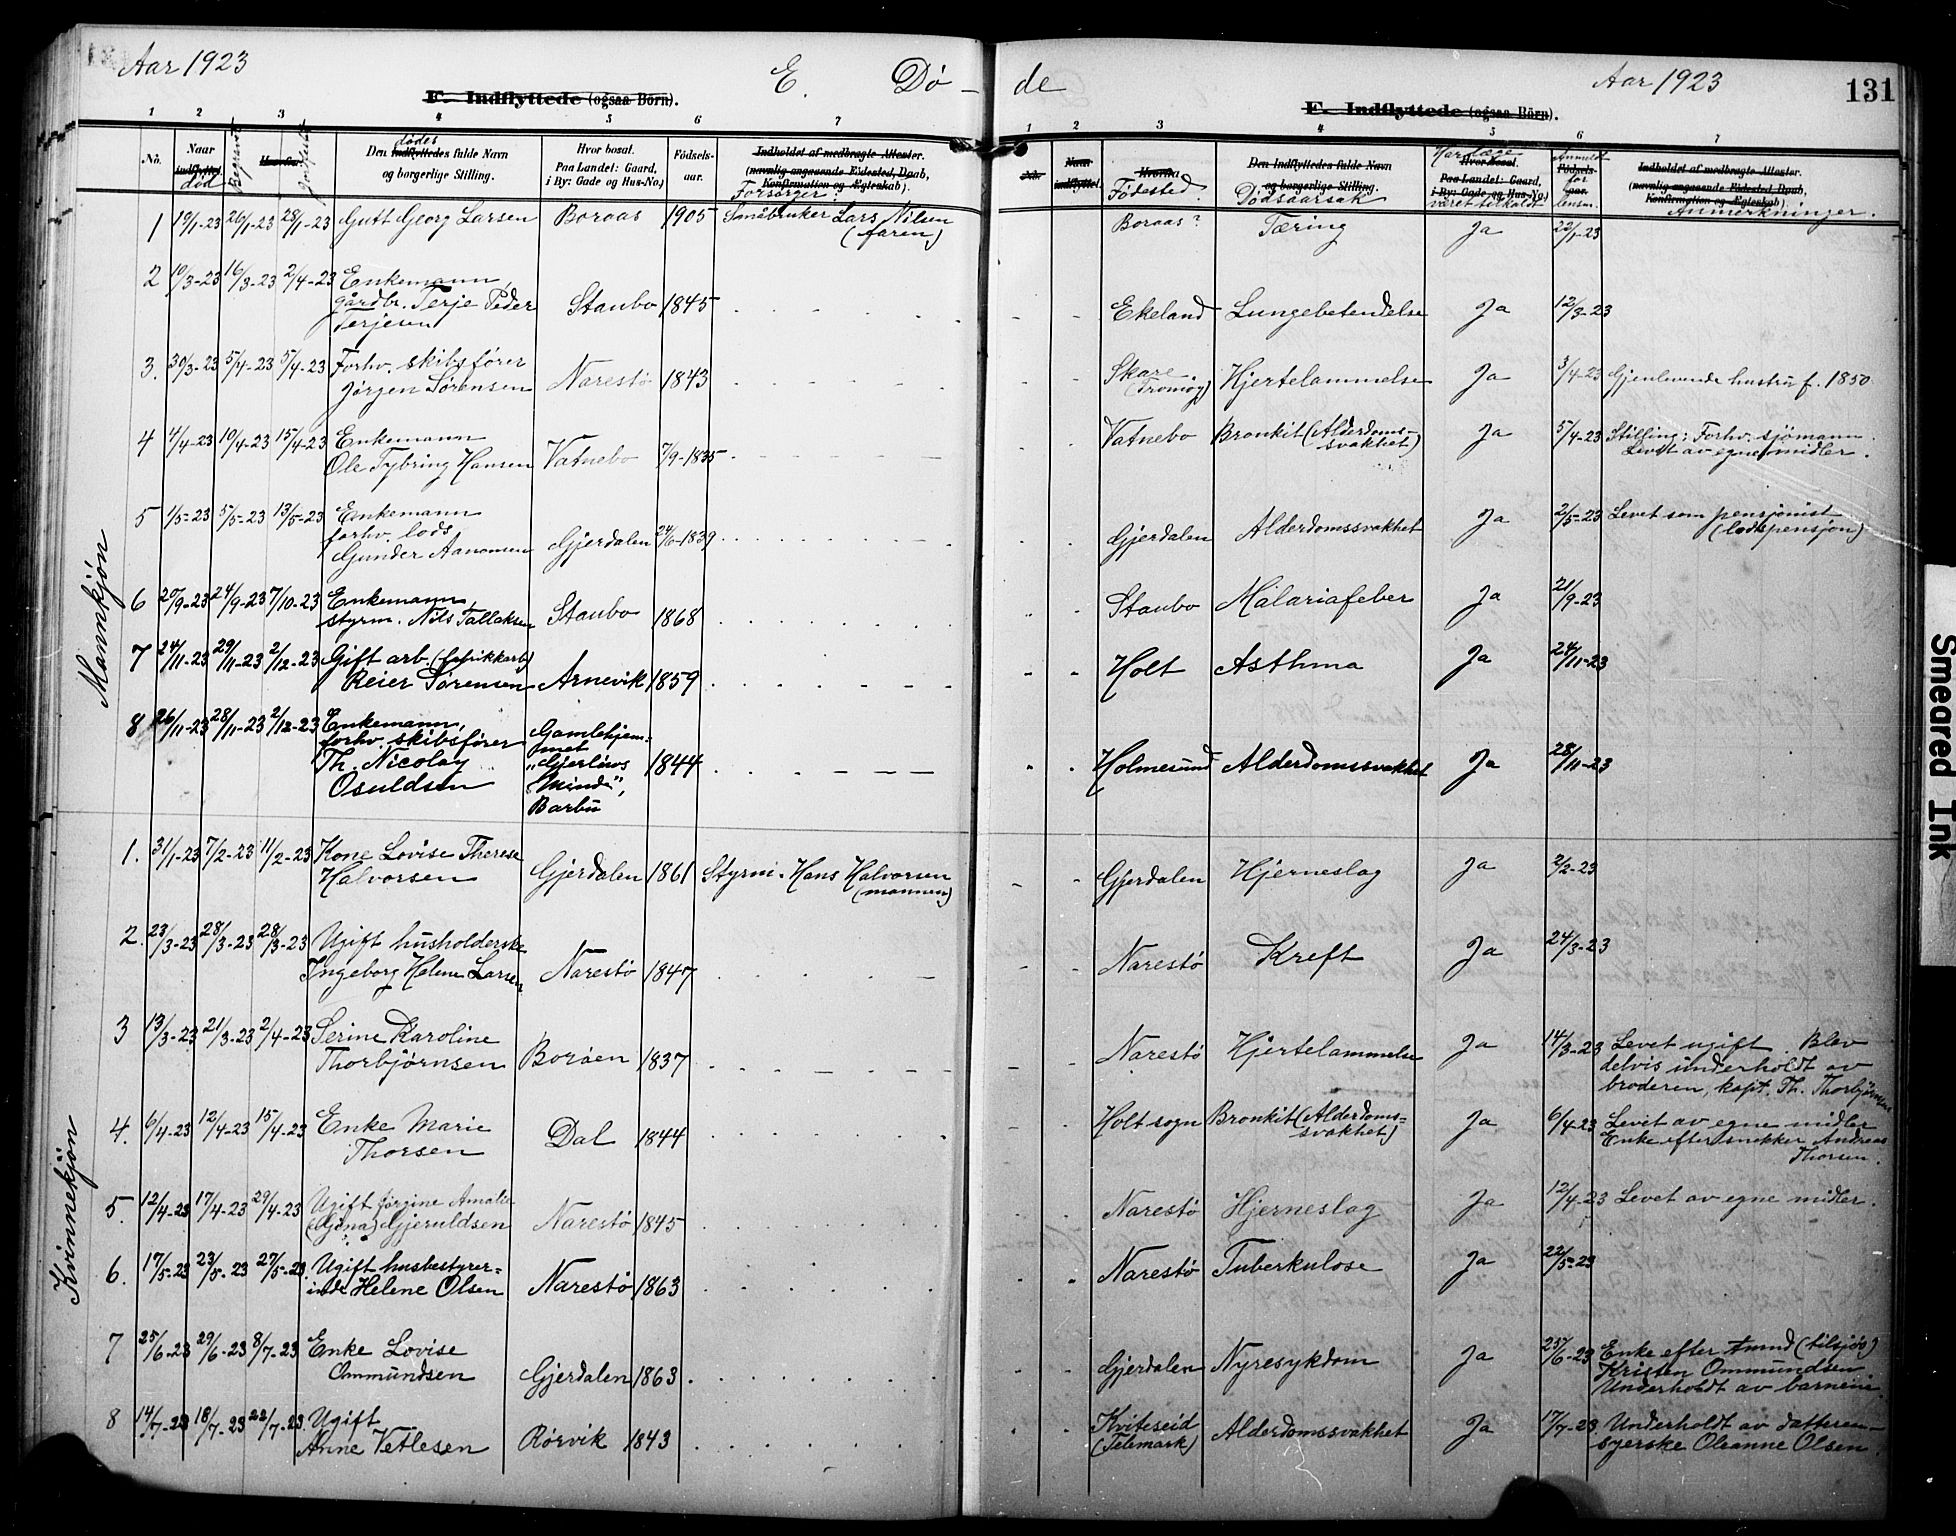 Aar 1923
E. Dö - de
Aar 1923
131
F. Indflyttede (ogsaa Börn).
F. Indflyttede (ogsaa Börn).
1 2 3 4 5 6 7
1 2 3 4 5 6 7
No.
Naar indflyttet. död
Begravet
Hvorfra.
Jordfestet
Den Indflyttedes dödes fulde Navn og borgerlige Stilling.
Hvor bosat. Paa Landet: Gaard, i By: Gade og Hus-No.
Födsels-aar.
Indholdet af medbragte Attester. (navnlig angaaende Födested, Daab, Konfirmation og Ægteskab).
Forsørger.
No.
Naar indflyttet.
Hvorfra
Födested.
Den Indflyttedes fulde Navn og borgerlige Stilling.
Dödsaarsak
Har læge
Hvor bosat. Paa Landet: Gaard, i By: Gade og Hus-No.
været tilkaldt
Anmeldt
Födsels-aar.
for
lensm.
Indholdet af medbragte Attester. (navnlig angaaende Födested, Daab, Konfirmation og Ægteskab).
Anmerkninger.
Mannkjön
1 19/1-23 26/1-23 28/1-23 Gutt Georg Larsen Boraas 1905 Småbruker Lars Nilsen (faren) Boraas? Tæring Ja 22/1-23
2 10/3-23 16/3-23 2/4-23 Enkemann, gårdbr. Terje Peder Terjesen Staubo 1845 Ekeland Lungebetendelse Ja 12/3-23
3. 30/3-23 5/4-23 5/4-23 Forhv. skibsförer Jörgen Sörensen Narestö 1843 Skare (Tromöy) Hjertelammelse Ja 3/4-23 Gjenlevende hustru f. 1850
4 4/4-23 10/4-23 15/4-23 Enkemann Ole Tybring Hansen Vatnebo 7/9-1835 Vatnebo Bronkit (Alderdoms-svakhet) Ja 5/4-23 Stilling: Forhv. sjömann. Levet av egne midler.
5 1/5-23 5/5-23 13/5-23 Enkemann forhv. lods Gunder Aanonsen Gjerdalen 24/6-1839 Gjerdalen Alderdomssvakhet Ja 2/5-23 Levet som pensjonist (lodspensjon)
6 20/9-23 24/9-23 7/10-23 Enkemann, styrm. Nils Tallaksen Staubo 1868 Staubo Malariafeber Ja 21/9-23
7 24/11-23 29/11-23 2/12-23 Gift arb. (fabrikkarb) Reier Sörensen Arnevik 1859 Holt Asthma Ja 24/11-23
8 26/11-23 28/11-23 2/12-23 Enkemann, forhv. skibsförer Th. Nicolay Osuldsen Gamlehjem-met "Gjerlöws Minde", Barbu 1844 Holmesund Alderdomssvakhet Ja 28/11-23
Kvinnekjön
1. 31/1-23 7/2-23 11/2-23 Kone Lovise Therese Halvorsen Gjerdalen 1861 Styrm. Hans Halvorsen (mannen) Gjerdalen Hjerneslag Ja 2/2-23
2. 23/3-23 28/3-23 28/3-23 Ugift husholderske Ingeborg Helene Larsen Narestö 1847 Narestö Kreft Ja 24/3-23
3 13/3-23 21/3-23 2/4-23 Serine Karoline Thorbjörnsen Boröen 1837 Narestö Hjertelammelse Ja 14/3-23 Levet ugift. Blev delvis underholdt av broderen, kapt. Th. Thorbjörnsen
4. 6/4-23 12/4-23 15/4-23 Enke Marie Thorsen Dal 1844 Holt sogn Bronkit (Alderdoms-svakhet) Ja 6/4-23 Levet av egne midler Enke efter snekker Andreas Thorsen.
5. 12/4-23 17/4-23 29/4-23 Ugift Jörgine Amalie (Gina) Gjeruldsen Narestö 1845 Narestö Hjerneslag Ja 12/4-23 Levet av egne midler.
6. 17/5-23 23/5-23 27/5-23 Ugift husbestyrer-inde Helene Olsen Narestö 1863 Narestö Tuberkulose Ja 22/5-23
7 25/6-23 29/6-23 8/7-23 Enke Lovise Ommundsen Gjerdalen 1863 Gjerdalen Nyresykdom Ja 25/6-23 Enke efter (tilsjös) Kristen Ommundsen Underholdt av barnene.
8 14/7-23 18/7-23 22/7-23 Ugift Anne Vetlesen Rörvik 1843 Kviteseid (Telemark) Alderdomssvakhet Ja 17/7-23 Underholdt av datteren - syerske Oleanne Olsen.
Smeared Ink